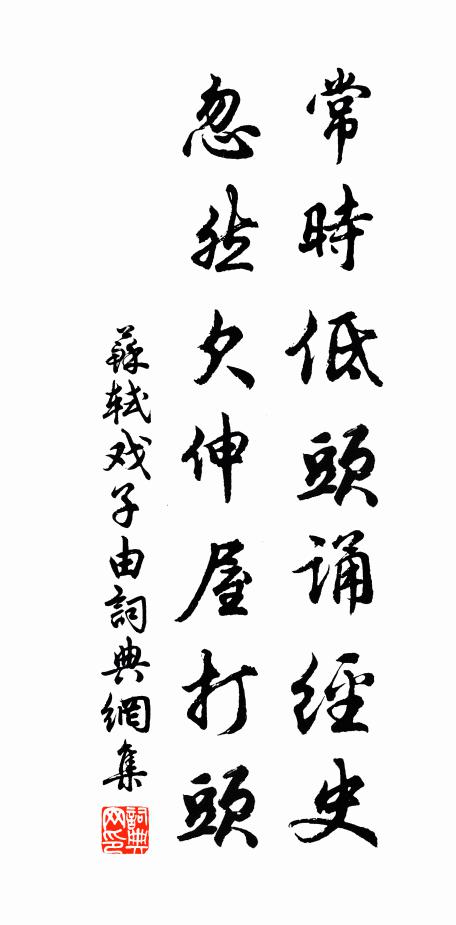 常時低頭誦經史
忽然欠伸屋打頭
蘇軾戏子由詞典網集
詞典网印